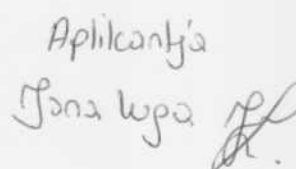 Aplikantja
Jona Lupa